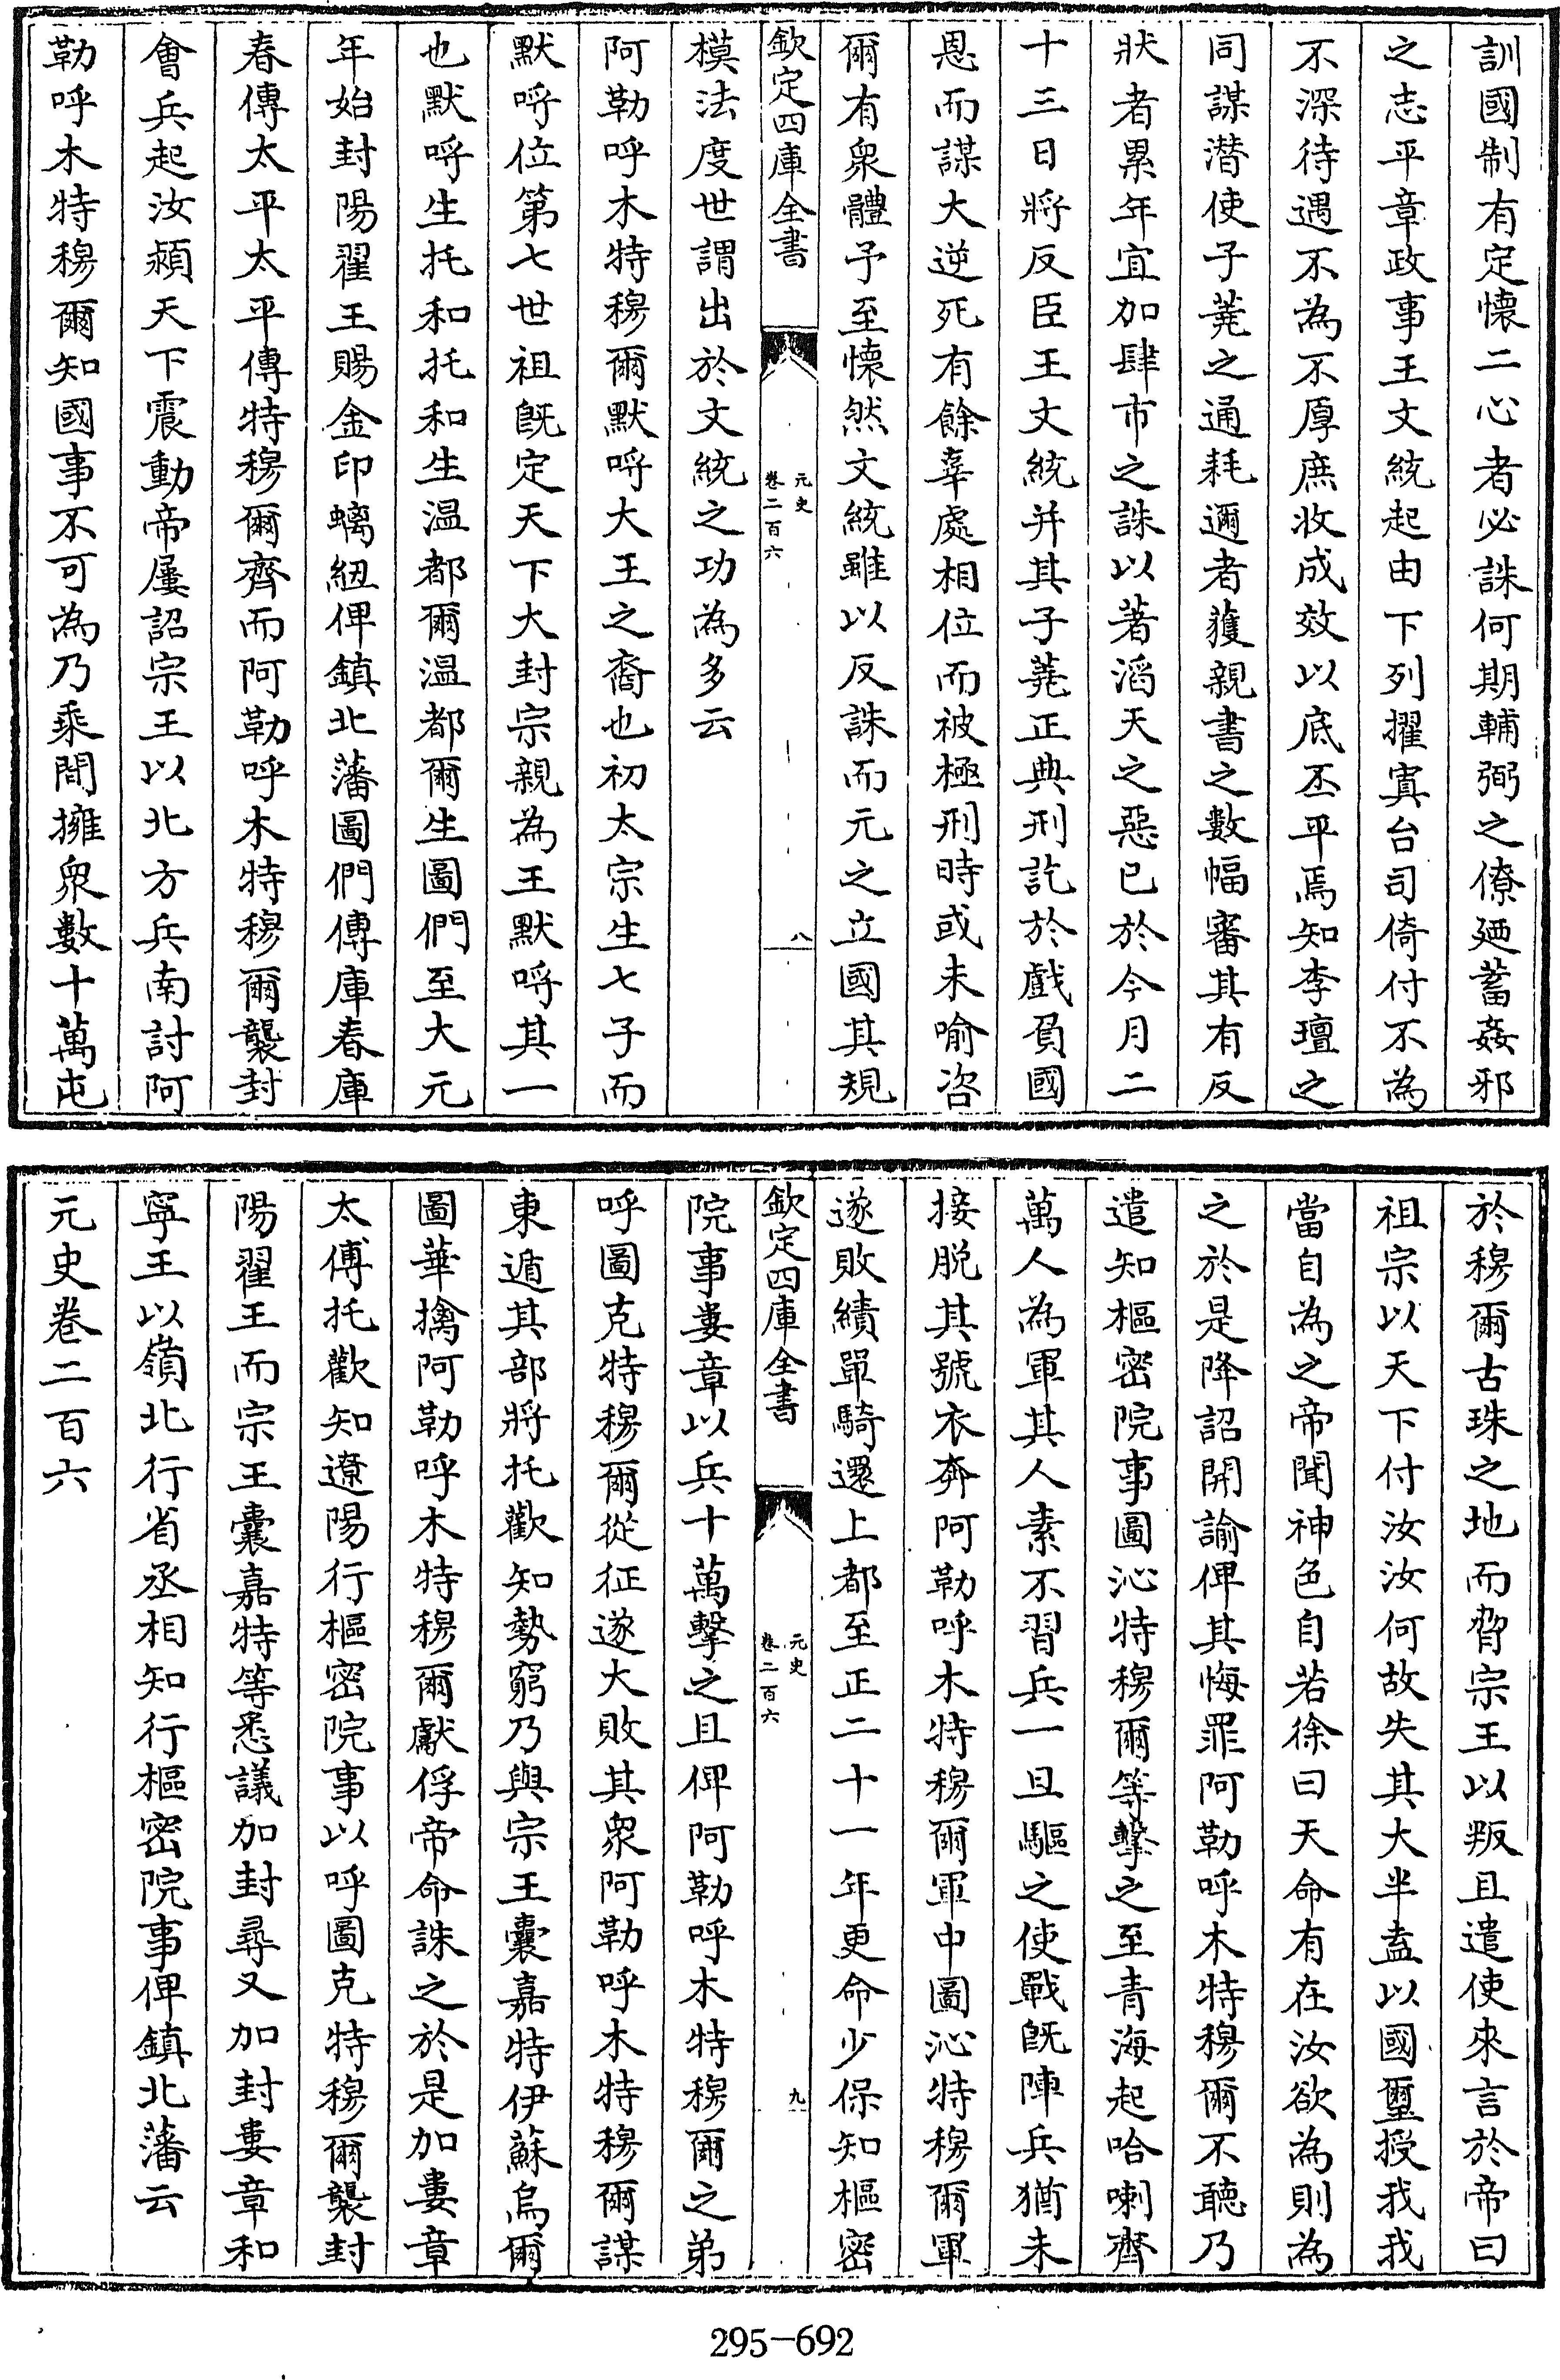 訓國制有定懐二心者必誅何期輔弼之僚廼蓄姦邪
之志平章政事王文統起由下列擢寘台司倚付不為
不深待遇不為不厚庶收成效以底丕平焉知李璮之
同謀潜使子蕘之通耗邇者獲親書之數幅審其有反
狀者累年宜加肆市之誅以著滔天之惡已於今月二
十三日將反臣王文統并其子蕘正典刑訖於戲負國
恩而謀大逆死有餘辜處相位而被極刑時或未喻咨
爾有衆體予至懐然文統雖以反誅而元之立國其規
欽定四庫全書
元史
卷二百六
八
模法度世謂出於文統之功為多云
阿勒呼木特穆爾默呼大王之裔也初太宗生七子而
默哷位第七世祖既定天下大封宗親為王默哷其一
也默哷生托和托和生温都爾温都爾生圖們至大元
年始封陽翟王賜金印螭紐俾鎮北藩圖們傳庫春庫
春傳太平太平傳特穆爾齊而阿勒呼木特穆爾襲封
會兵起汝潁天下震動帝屢詔宗王以北方兵南討阿
勒呼木特穆爾知國事不可為乃乘間擁衆數十萬屯
於穆爾古珠之地而脅宗王以叛且遣使來言於帝曰
祖宗以天下付汝汝何故失其大半盍以國璽授我我
當自為之帝聞神色自若徐曰天命有在汝欲為則為
之於是降詔開諭俾其悔罪阿勒呼木特穆爾不聽乃
遣知樞密院事圖沁特穆爾等擊之至青海起哈喇齊
萬人為軍其人素不習兵一旦驅之使戰既陣兵猶未
接脱其號衣奔阿勒呼木特穆爾軍中圖沁特穆爾軍
遂敗績單騎還上都至正二十一年更命少保知樞密
欽定四庫全書
元史
卷二百六
九
院事婁章以兵十萬擊之且俾阿勒呼木特穆爾之弟
呼圖克特穆爾從征遂大敗其衆阿勒呼木特穆爾謀
東遁其部將托歡知勢窮乃與宗王囊嘉特伊蘇烏爾
圖華擒阿勒呼木特穆爾獻俘帝命誅之於是加婁章
太傅托歡知遼陽行樞密院事以呼圖克特穆爾襲封
陽翟王而宗王囊嘉特等悉議加封尋又加封婁章和
寧王以嶺北行省丞相知行樞密院事俾鎮北藩云
元史卷二百六
295-692